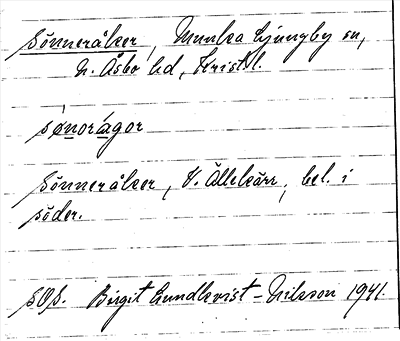 Sönneråker, Munka Ljungby sn,
N. Åsbo hd, Krist. l.
sønorågor
Sönneråker, V. Ällekärr, bel. i
söder.
SOS. Birgit Lundkvist-Nilsson 1941.